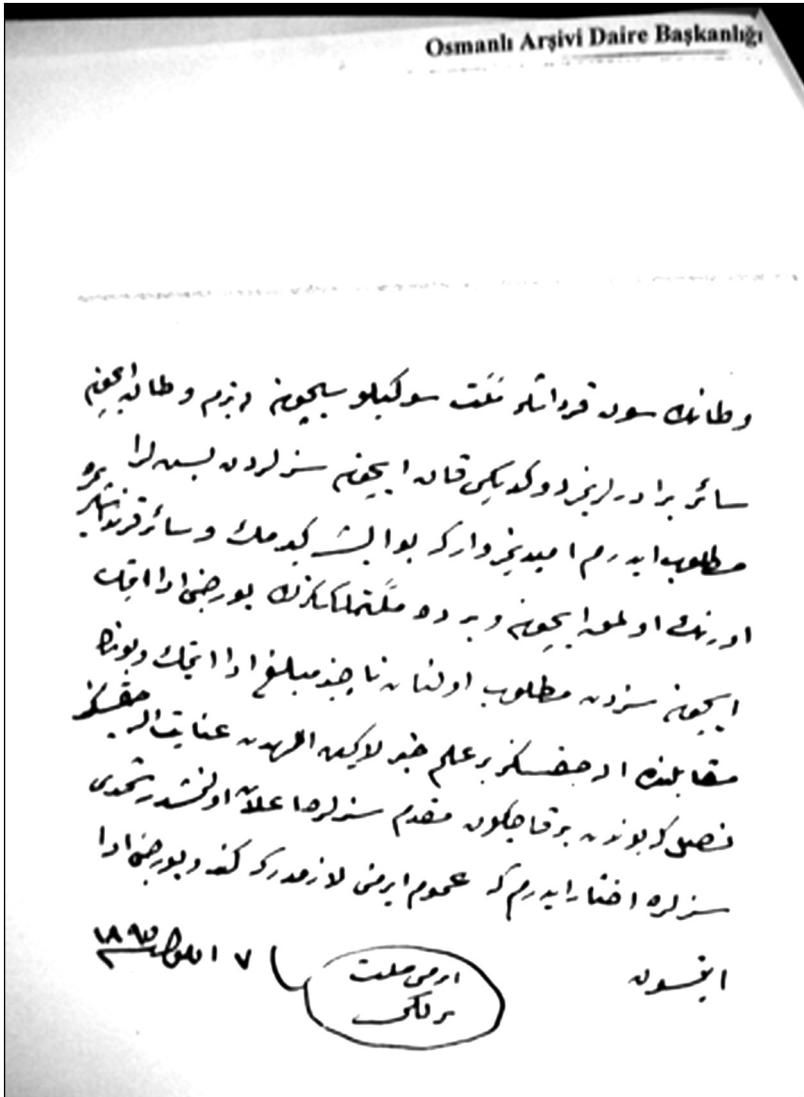 Osmanlı Arşivi Daire Başkanlığı
وطانك سون قرداشلر ملّت سوكيلو سيچون بزم وطان ايچون
سائر برادرلريمز دوكديكى قان ايچون سزلردن
مطلوب ايدرم اميديمز واركه بو ايشه كيرمك و سائر قرنداشلره
اورنك اولمق ايچون و بر ده ملّتملكڭزك بورجنى ادا ايتمك
ايچون سزدن مطلوب اولنان ناچيز مبلغ ادا ايتمك و بونك
مقابلنده اوله جقسكز بر علم خبر لاكين اللهدن عنايت
نصل كه بوندن برقاچ كون مقدم سزلره اعلان اولنمشدر شمدى
سزلره اخطار ايدرم كه عموم ارمنى لازمدر كه كندو بورجنى ادا
ايتسون
٧ ١٨٩٥
ارمنى ملت
برلكى